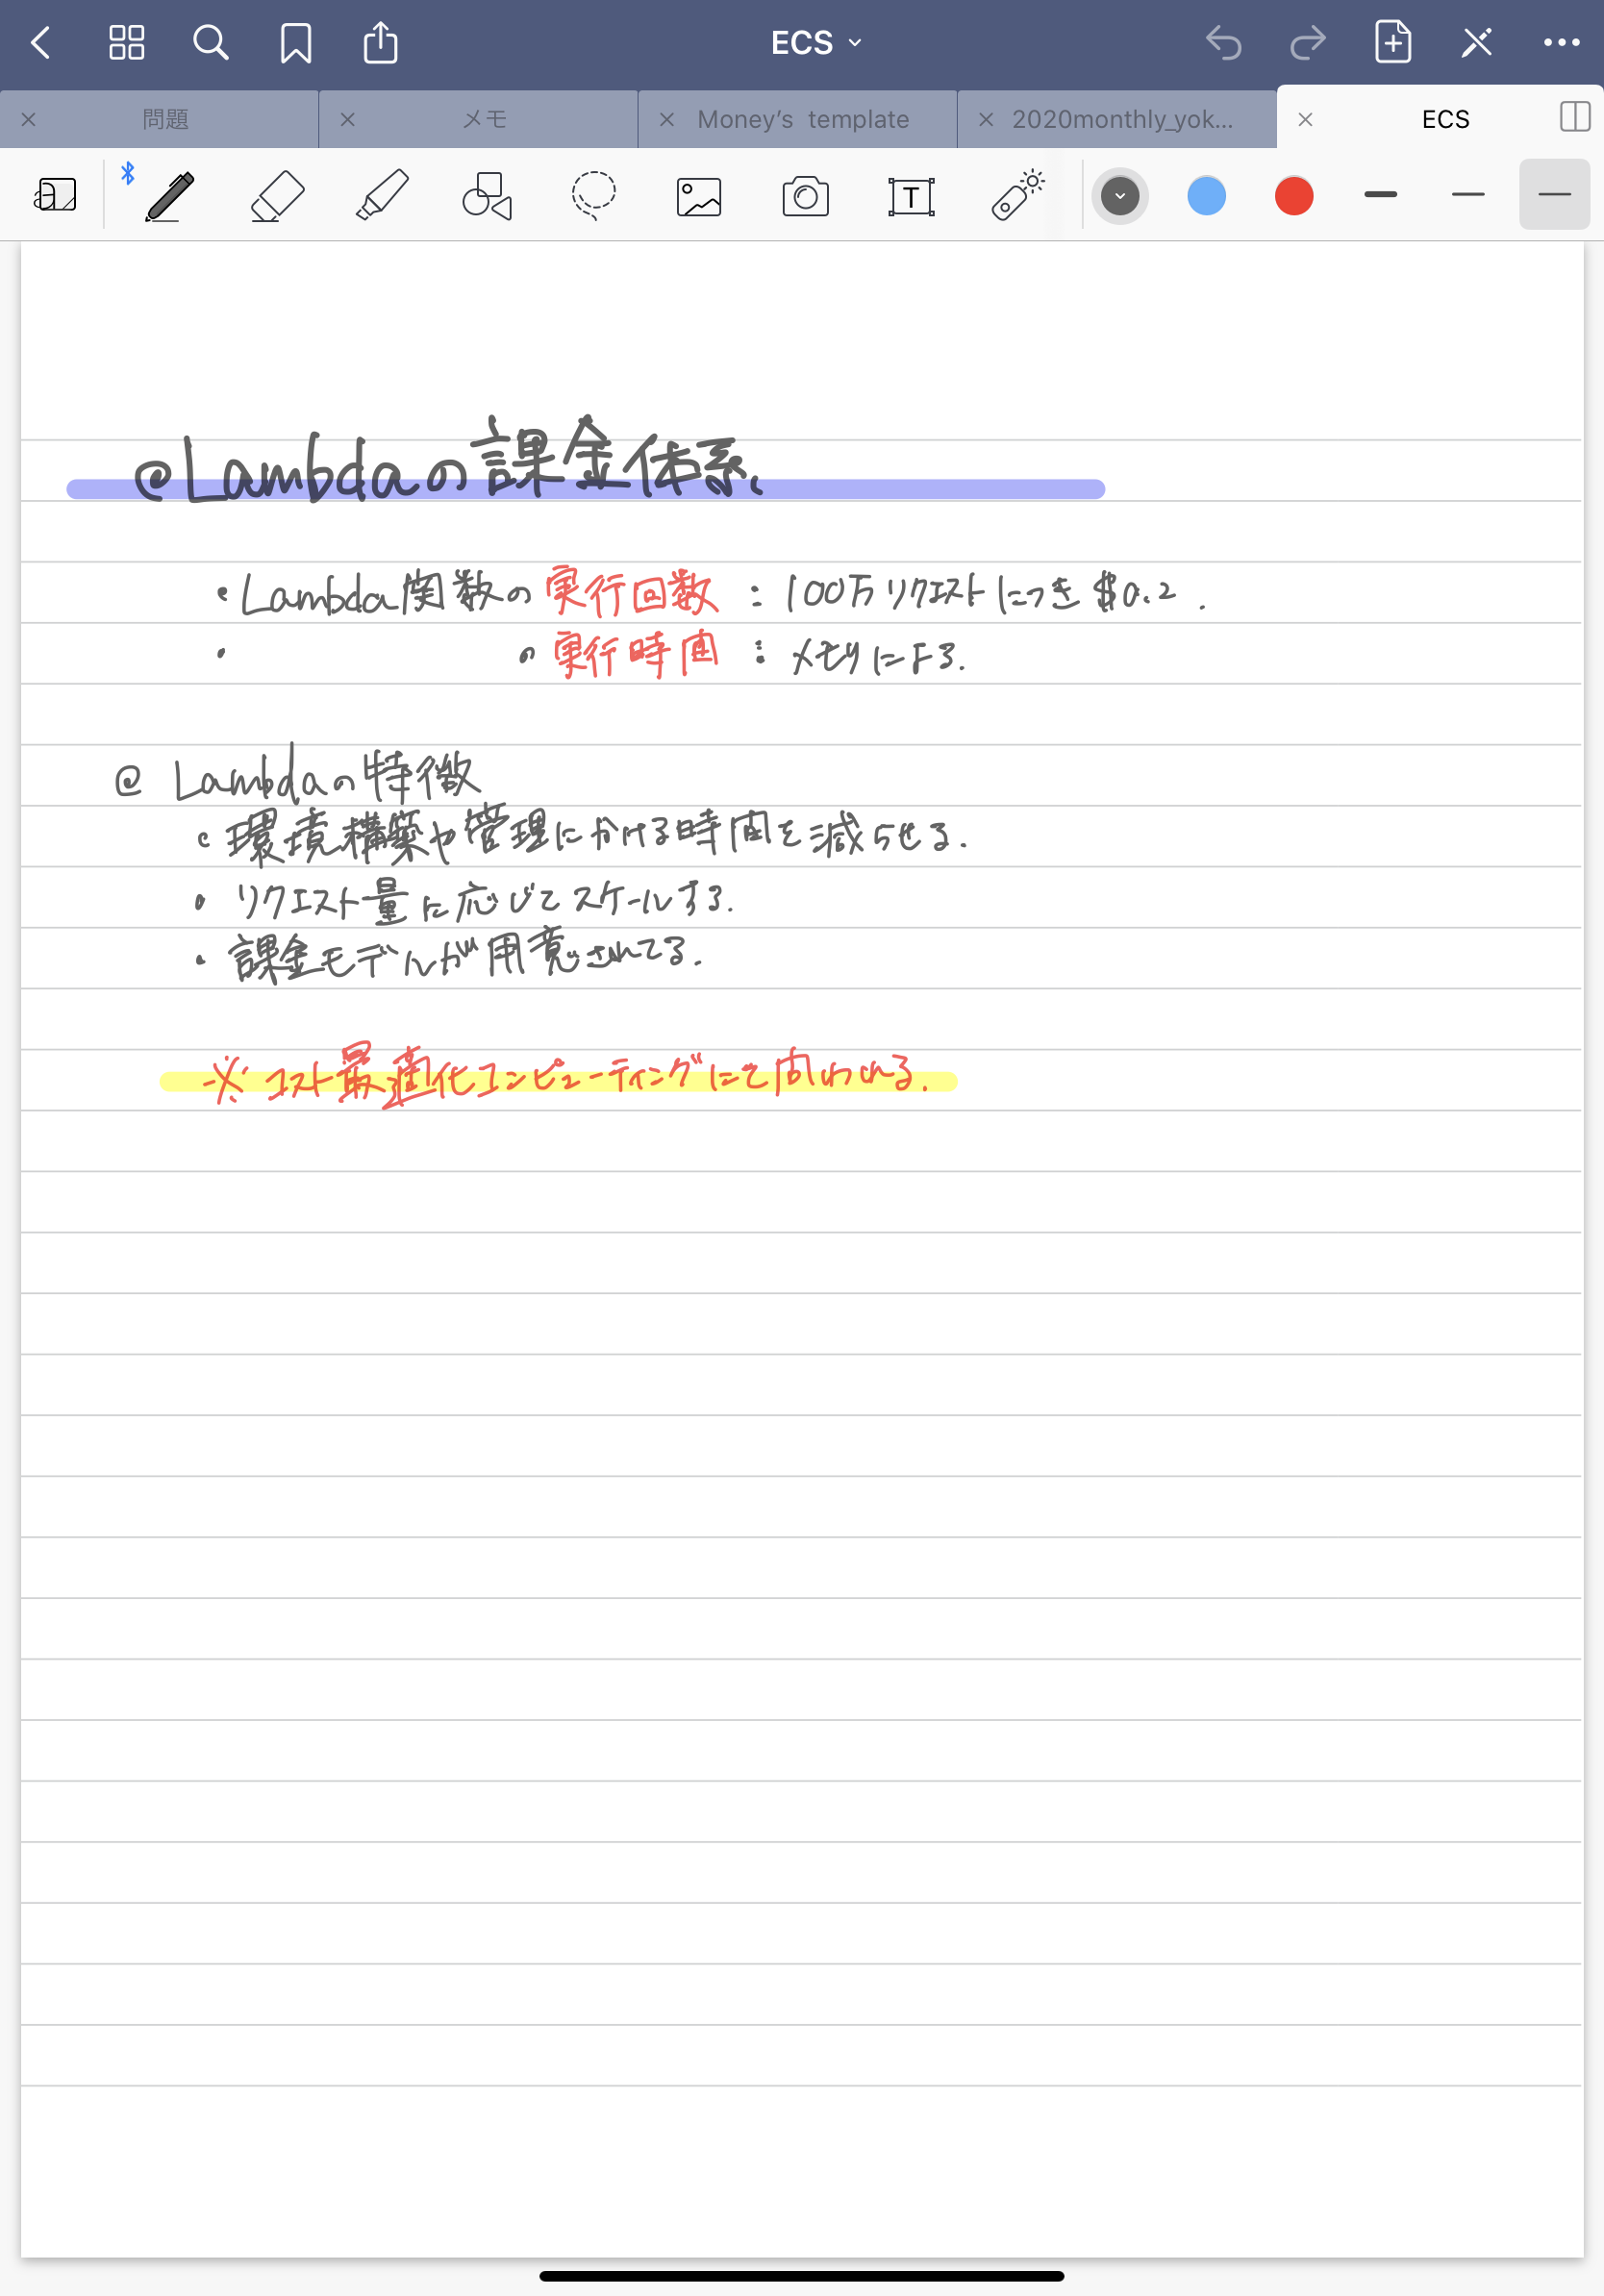 ECS
問題
メモ
Money's template
2020monthly_yok...
ECS
@Lambdaの課金体系.
・Lambda関数の実行回数 : 100万リクエストにつき$0.2.
・ の実行時間 : メモリによる.
@ Lambdaの特徴
・環境構築や管理にかける時間を減らせる.
・リクエスト量に応じてスケールする.
・課金モデルが用意されてる.
※コスト最適化コンピューティングにて問われる.